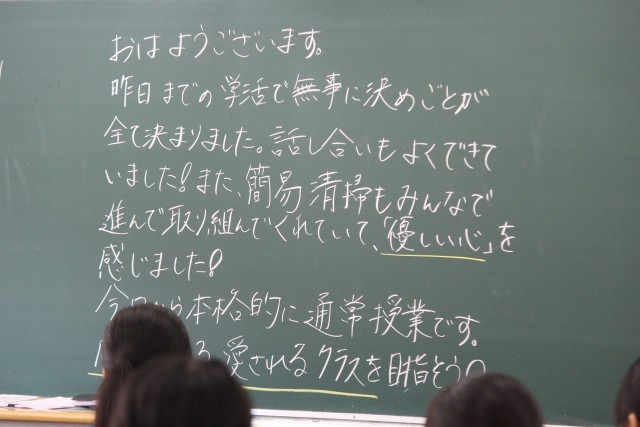 おはようございます。
昨日までの学活で無事に決めごとが
全て決まりました。話し合いもよくできて
いました!また、簡易清掃もみんなで
進んで取り組んでくれていて、「優しい心」を
感じました!
今日から本格的に通常授業です。
る愛されるクラスを目指そう